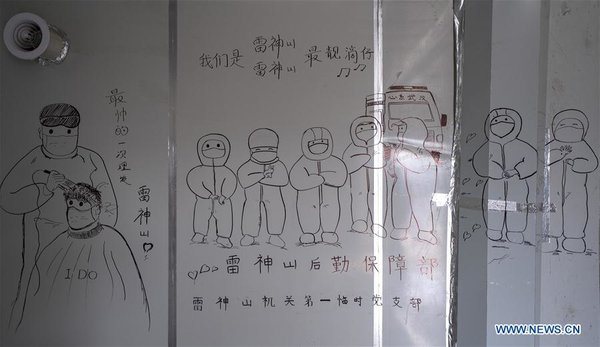 雷神山
我们是 雷神山 最靓滴仔
心系武汉
最帅的一次理发
雷神山
I DO
雷神山后勤保障部
雷神山机关第一临时党支部
WWW.NEWS.CN